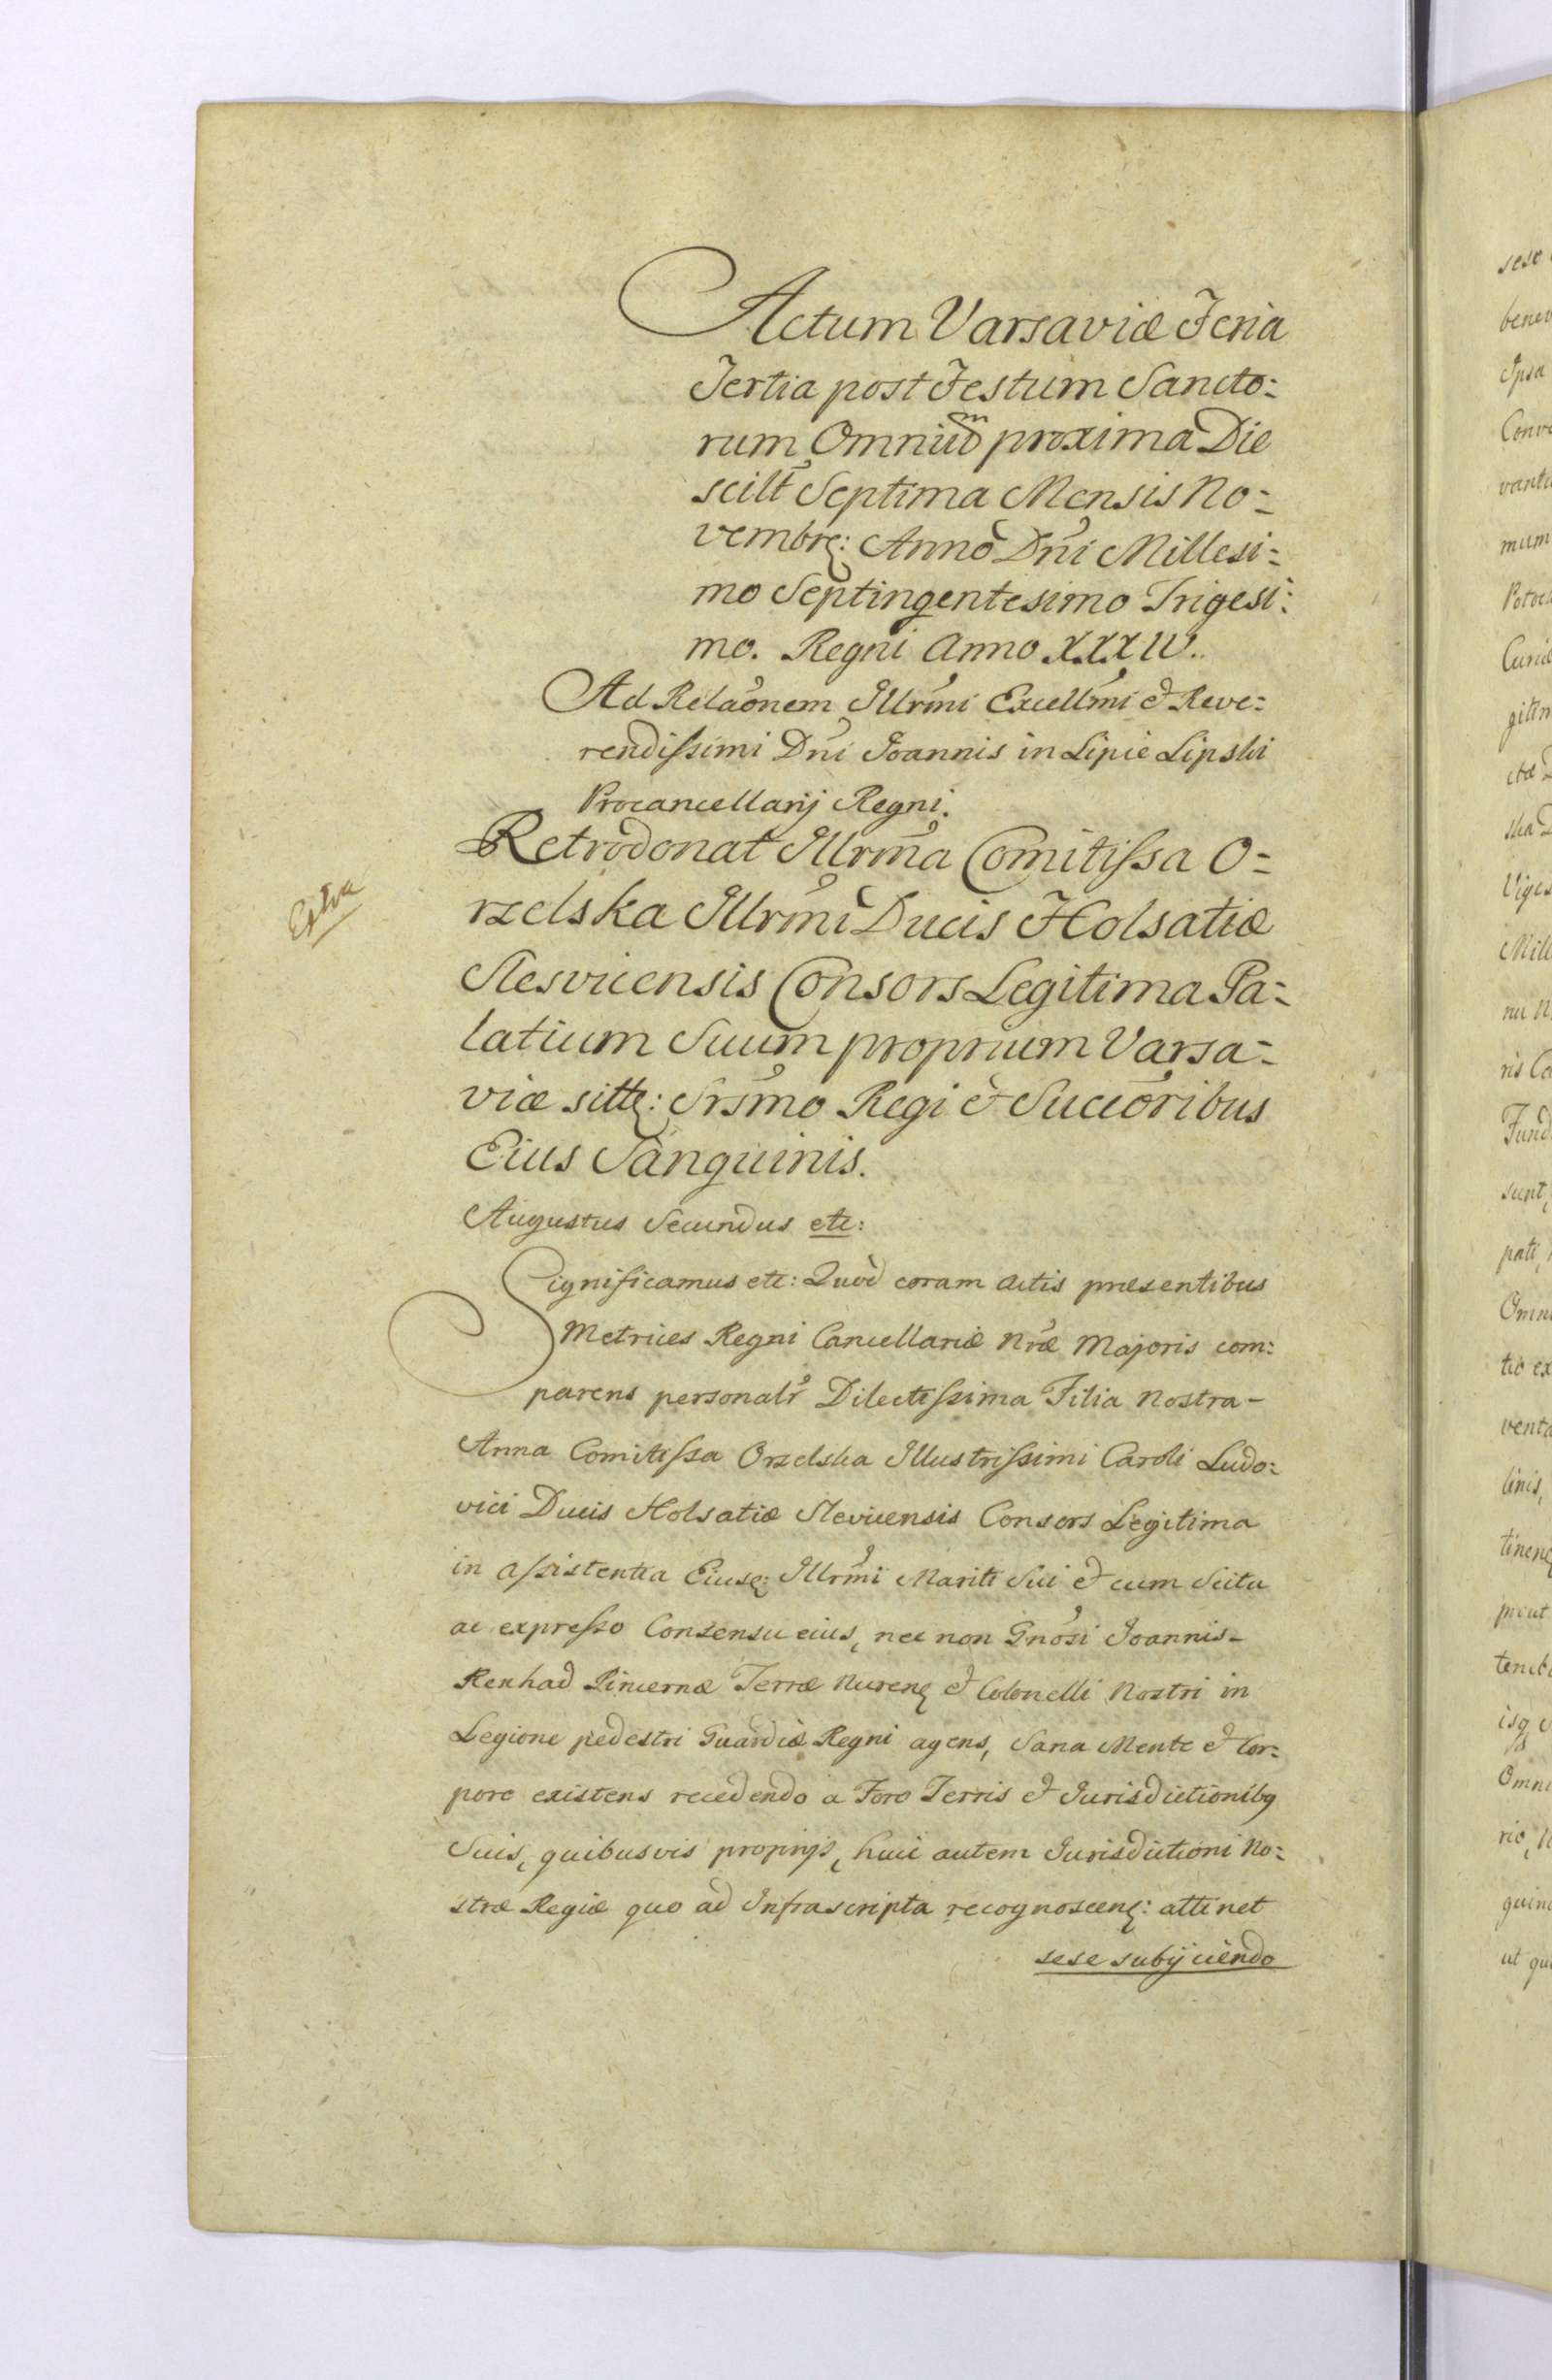 Actum Varsaviæ Feria
Tertia post Festum Sancto:
rum Omniũm proxima Die
scilt Septima Mensis No=
vembrę: Anno Dñi Millesi=
mo Septingentesimo Trigesi:
mo. Regni Anno XXXIV.
Ad Relaõnem Illrmi Excellmi & Reve:
rendissimi Dñi Joannis in Lipie Lipski
Procancellarij Regni.
Retrodonat Illrma Comitissa O=
rzelska Illrmi Ducis Holsatiæ
Slesvicensis Consors Legitima Pa=
latium Suum proprium Varsa=
viæ sittę: Srsmo Regi & Succõribus
Eius Sanguinis.
Extra
Augustus Secundus etc:
Significamus etc: Quòd coram actis præsentibus
Metrices Regni Cancellariæ Nræ Majoris com:
parens personalr Dilectissima Filia Nostra-
Anna Comitissa Orzelska Illustrissimi Caroli Ludo:
vici Ducis Holsatiæ Slevicensis Consors Legitima
in assistentia Eiusę: Illrmi Mariti Sui & cum Scitu
ac expresso Consensu eius, nec non Gnõsi Joannis-
Renhad Pincernæ Terræ Nurenę & Colonelli Nostri in
Legione pedestri Guardiæ Regni agens, Sana Mente & Cor=
pore existens recedendo a Foro Terris & Jurisdictionibꝯ
Suis, quibusvis proprijs, huic autem Jurisdictioni No=
stræ Regiæ quo ad Infrascripta recognoscenę: attinet
sese subijciendo
sese